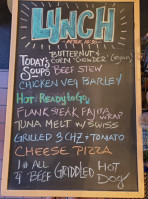 LYNCH
BUTTERNUT +
TODAY'S CORN CHOWDER (vegan)
SOUPS BEEF STEW
CHICKEN VEG BARLEY
HOT Ready to Go
FLANK STEAK FAJITA WRAP
TUNA MELT w/ SWISS
GRILLED 3 CHZ + TOMATO
CHEESE PIZZA
ALL BEEF GRIDDLED HOT DOG